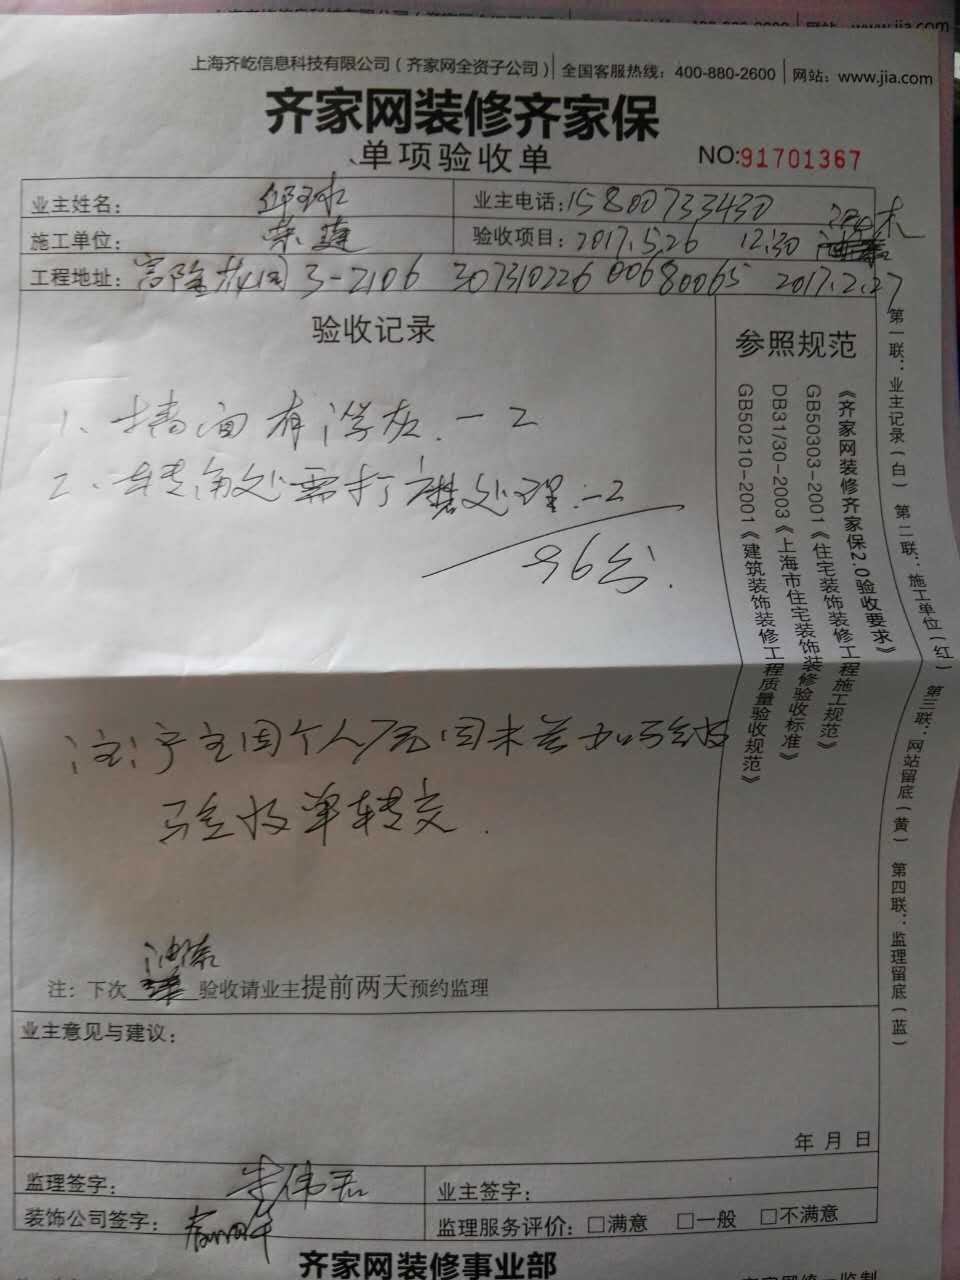 上海齐屹信息科技有限公司（齐家网全资子公司） 全国客服热线：400-880-2600 网站：www.jia.com
齐家网装修齐家保
单项验收单
NO:91701367
业主姓名： 邱球 业主电话：15800733430
施工单位： 荣建 验收项目：2017.5.26 12:30 泥木
工程地址：富隆花园 3-2106 307310226 00680065 2017.2.27
验收记录
1、墙面有浮灰.-2
2、转角处需打磨处理.-2
96分.
注：业主因个人原因未参加验收
验收单转交.
油漆
注：下次 验收请业主提前两天预约监理
参照规范
《齐家网装修齐家保2.0验收要求》
GB50303-2001《住宅装饰装修工程施工规范》
DB31/30-2003《上海市住宅装饰装修验收标准》
GB50210-2001《建筑装饰装修工程质量验收规范》
第一联：业主记录（白） 第二联：施工单位（红） 第三联：网站留底（黄） 第四联：监理留底（蓝）
业主意见与建议：
年 月 日
监理签字： 朱伟君 业主签字：
装饰公司签字： 监理服务评价：□满意 □一般 □不满意
齐家网装修事业部